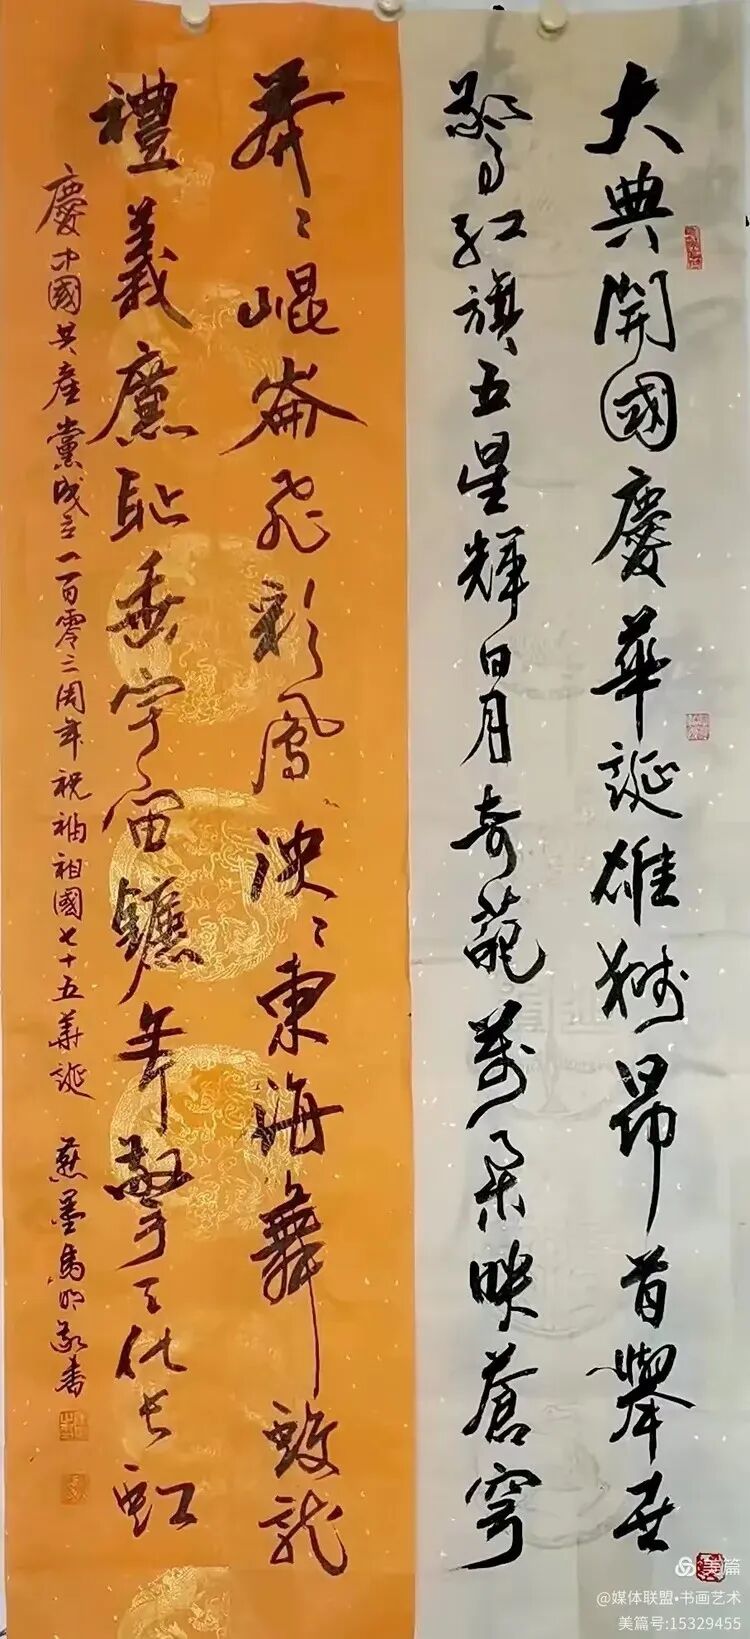 大典開國慶華誕雄獅昂首舉世
驚紅旗五星輝日月奇葩萬朵映蒼穹
莽〻崐崙飛彩鳳泱〻東海舞蛟龍
禮義廉恥垂宇宙鑣年擎天化長虹
慶中國共產黨成立一百零三周年祝福祖國七十五華誕 燕墨馬明敬書
美篇
@媒体联盟•书画艺术
美篇号:15329455